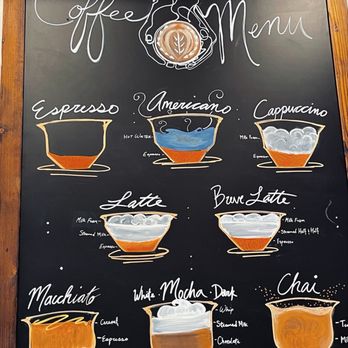 Coffee Menu
Espresso
Americano
Hot Water
Espresso
Cappuccino
Milk Foam
Espresso
Latte
Milk Foam
Steamed Milk
Espresso
Breve Latte
Milk Foam
Steamed Half & Half
Espresso
Macchiato
Caramel
Espresso
White Mocha Dark
Whip
Steamed Milk
Chocolate
Chai